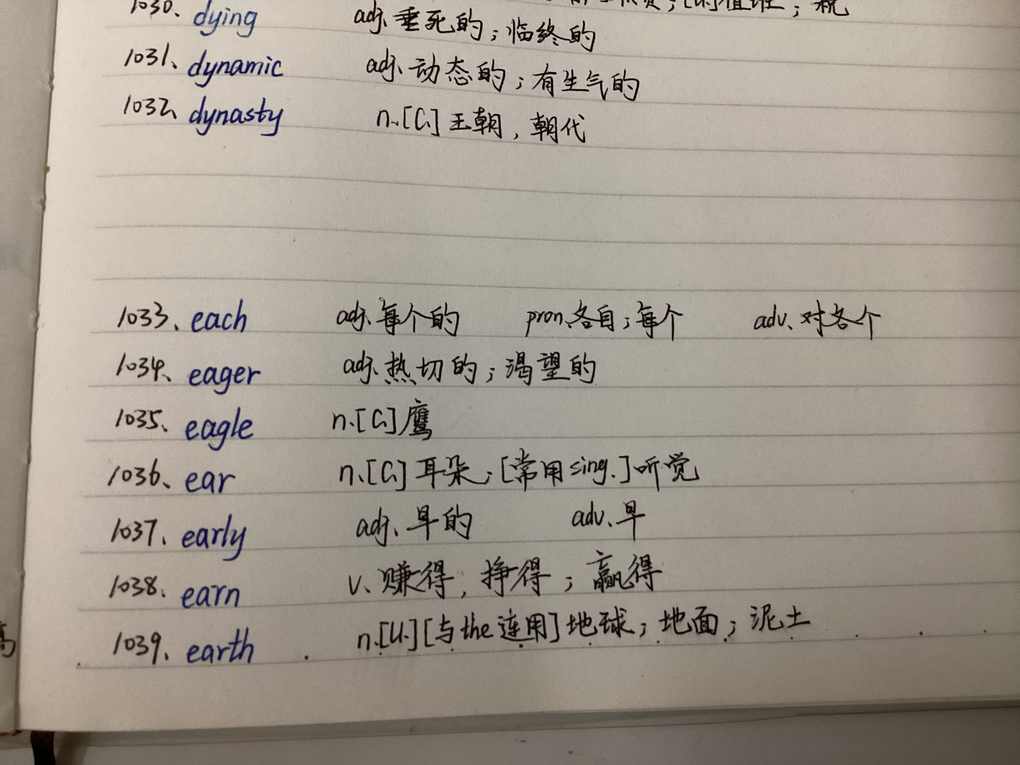 1030、dying adj.垂死的；临终的
1031、dynamic adj.动态的；有生气的
1032、dynasty n.[C.]王朝，朝代
1033、each adj.每个的 pron.各自；每个 adv.对各个
1034、eager adj.热切的；渴望的
1035、eagle n.[C.]鹰
1036、ear n.[C.]耳朵；[常用sing.]听觉
1037、early adj.早的 adv.早
1038、earn v.赚得，挣得；赢得
1039、earth n.[U.][与the连用]地球；地面；泥土